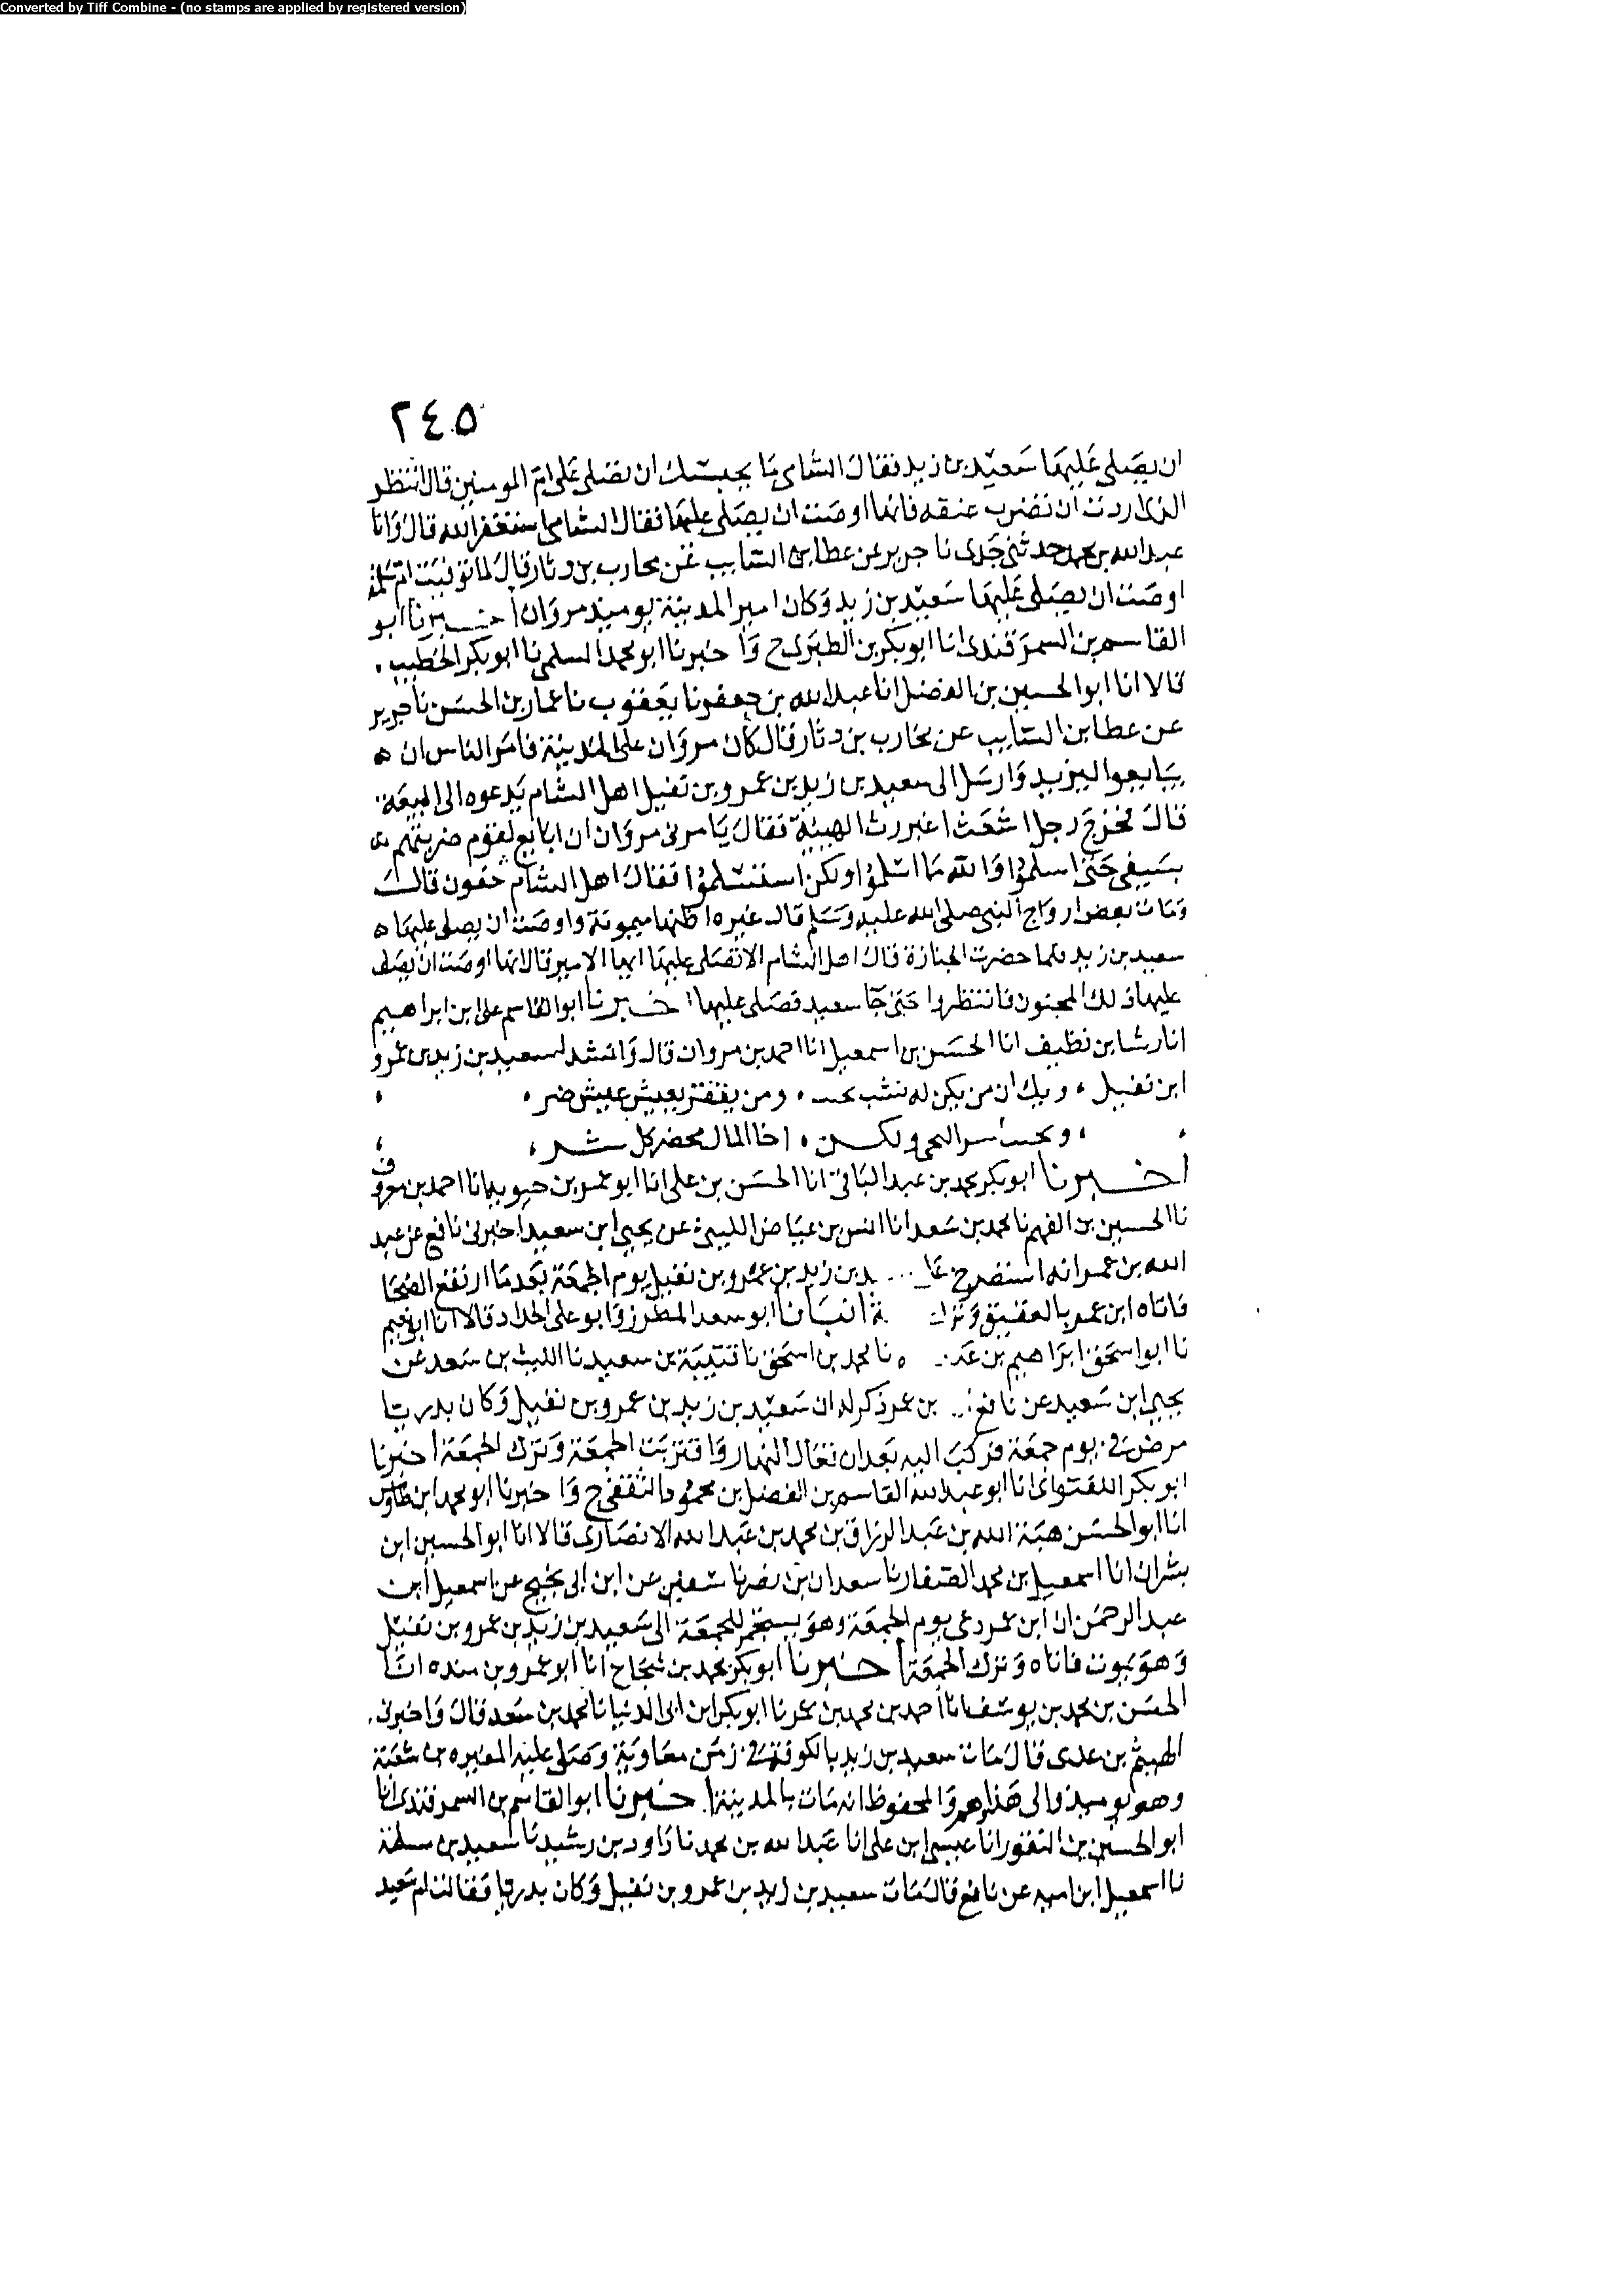 Converted by Tiff Combine - (no stamps are applied by registered version)
٢٤٥
ان يصلى عليها سعيد بن زيد فقال الشامى ما يحبسك ان تصلى على ام المومنين قال انتظر
الذى اردت ان تضرب عنقه فانها اوصت ان يصلى عليها فقال الشامى استغفر الله قال وانا
عبد الله بن محمد حدثنى جدى نا جرير عن عطا بن السايب عن محارب بن دثار قال لما توفيت ام سلمة
اوصت ان يصلى عليها سعيد بن زيد وكان امير المدينة يوميذ مروان اخبرنا ابو
القاسم بن السمرقندى انا ابو بكر بن الطبرى ح وا خبرنا ابو محمد السلمى نا ابو بكر الخطيب
قالا انا ابو الحسين بن الفضل انا عبد الله بن جعفر نا يعقوب نا عمار بن الحسن نا جرير
عن عطا بن السايب عن محارب بن دثار قال كان مروان على المدينة فامر الناس ان
يبايعوا ليزيد وارسل الى سعيد بن زيد بن عمرو بن نفيل اهل الشام يدعوه الى البيعة
قال فخرج رجل اشعث اغبر رث الهيئة فقال يامرنى مروان ان ابايع لقوم ضربتهم
بسيفى حتى اسلموا والله ما اسلموا ولكن استسلموا فقال اهل الشام مجنون قال
ومات بعض ازواج النبى صلى الله عليه وسلم قال غيره اظنها ميمونة واوصت ان يصلى عليها
سعيد بن زيد فلما حضرت الجنازة قال اهل الشام الا تصلى عليها ايها الامير قال انها اوصت ان يصلى
عليها ذلك المجنون فانتظروا حتى جا سعيد فصلى عليها اخبرنا ابو القاسم على ابن ابراهيم
انا رشا بن نظيف انا الحسن بن اسمعيل انا احمد بن مروان قال وانشد لسعيد بن زيد بن عمرو
ابن نفيل ، ويك ان من يكن له نشب يحبب ، ومن يفتقر يعيش عيش ضر ،
، ويجنب سر النجى ولكن ، اخا المال محضر كل شر ،
اخبرنا ابو بكر محمد بن عبد الباقى انا الحسن بن على انا ابو عمر بن حيويه انا احمد بن معروف
نا الحسين بن الفهم نا محمد بن سعد انا انس بن عياض الليثى عن يحيى ابن سعيد اخبرنى نافع عن عبد
الله بن عمر انه استصرخ على ... يد بن زيد بن عمرو بن نفيل يوم الجمعة بعد ما ارتفع الضحا
فاتاه ابن عمر بالعقيق وترك ة انبانا ابو سعد المطرز وابو على الحداد قالا انا ابو نعيم
نا ابو اسحق ابراهيم بن عبد نا محمد بن اسحق نا قتيبة بن سعيد نا الليث بن سعد عن
يحيى ابن سعيد عن نافع بن عمر ذكر له ان سعيد بن زيد بن عمرو بن نفيل وكان بدريا
مرض فى يوم جمعة فركب اليه بعد ان تعالا النهار واقتربت الجمعة وترك الجمعة اخبرنا
ابو بكر اللفتوانى انا ابو عبد الله القاسم بن الفضل بن محمود الثقفى ح وا خبرنا ابو محمد ابن طاوس
انا ابو الحسن هبة الله بن عبد الرزاق بن محمد بن عبد الله الانصارى قالا انا ابو الحسين ابن
بشران انا اسمعيل بن محمد الصفار نا سعدان بن نصر نا سفين عن ابن ابى نجيح عن اسمعيل ابن
عبد الرحمن ان ابن عمر دعى يوم الجمعة وهو يستجمر للجمعة الى سعيد بن زيد بن عمرو بن نفيل
وهو يموت فاتاه وترك الجمعة اخبرنا ابو بكر محمد بن شجاع انا ابو عمرو بن منده انا
الحسن بن محمد بن يوسف انا احمد بن محمد بن عمر نا ابو بكر ابن ابى الدنيا نا محمد بن سعد قال واخبرنى
الهيثم بن عدى قال مات سعيد بن زيد بالكوفة فى زمن معاوية وصلى عليه المغيره بن شعبة
وهو يوميذ والى هذا وهم والمحفوظ انه مات بالمدينة اخبرنا ابو القاسم بن السمرقندى انا
ابو الحسين بن النقور انا عيسى ابن على انا عبد الله بن محمد نا داود بن رشيد نا سعيد بن سلمة
نا اسمعيل ابن اميه عن نافع قال مات سعيد بن زيد بن عمرو بن نفيل وكان بدريا فقالت ام سعيد